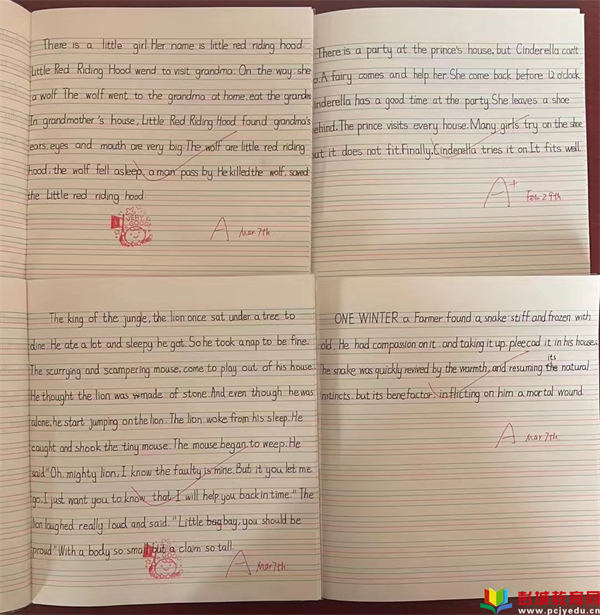 There is a little girl. Her name is little red riding hood.
Little Red Riding Hood wend to visit grandma. On the way, she
a wolf. The wolf went to the grandma at home. eat the grandma
In grandmother's house, Little Red Riding Hood found grandma's
ears, eyes and mouth are very big. The wolf are little red riding
hood, the wolf fell asleep, a man pass by. He killed the wolf, saved
the Little red riding hood.
VERY GOOD!
A Mar 7th
There is a party at the prince's house, but Cinderella can't
o. A fairy comes and help her. She come back before 12 o'clock
inderella has a good time at the party. She leaves a shoe
ehind. The prince visits every house. Many girls try on the shoe
ut it does not fit. Finally, Cinderella tries it on. It fits well.
A+ Feb 29th
The king of the jungle, the lion once sat under a tree to
dine. He ate a lot and sleepy he got. So he took a nap to be fine.
The scurrying and scampering mouse, come to play out of his house.
He thought the lion was made of stone. And even though he was
alone, he start jumping on the lion. The lion woke from his sleep. He
caught and shook the tiny mouse. The mouse began to weep. He
said "Oh, mighty lion, I know the faulty is mine. But it you let me
go. I just want you to know that I will help you back in time." The
lion laughed really loud and said. "Little bay, you should be
proud" With a body so small but a claim so tall.
A Mar 7th
ONE WINTER a Farmer found a snake stiff and frozen with
old. He had compassion on it, and taking it up, pleecad it in his house.
he snake was quickly revived by the warmth, and resuming its natural
instincts, but its benefactor, inflicting on him a mortal wound.
A Mar 7th
彭城教育网
www.pcjyedu.cn